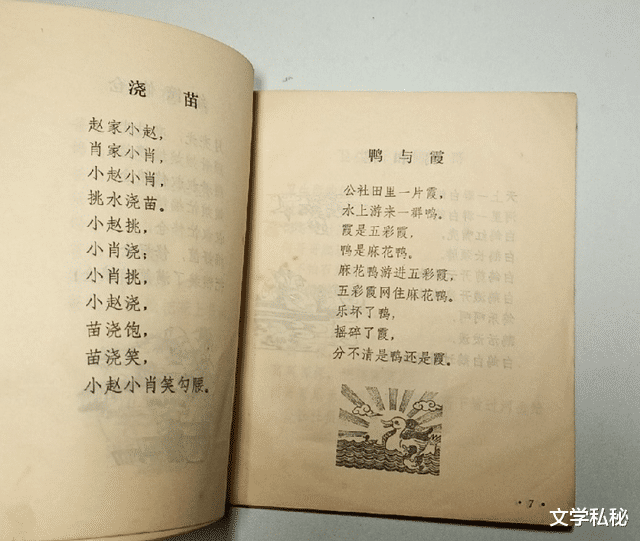 浇苗
赵家小赵，
肖家小肖，
小赵小肖，
挑水浇苗。
小赵挑，
小肖浇；
小肖挑，
小赵浇，
苗浇饱，
苗浇笑，
小赵小肖笑勾腰。
鸭与霞
公社田里一片霞，
水上游来一群鸭。
霞是五彩霞，
鸭是麻花鸭。
麻花鸭游进五彩霞，
五彩霞网住麻花鸭。
乐坏了鸭，
摇碎了霞，
分不清是鸭还是霞。
·7·
文学私秘